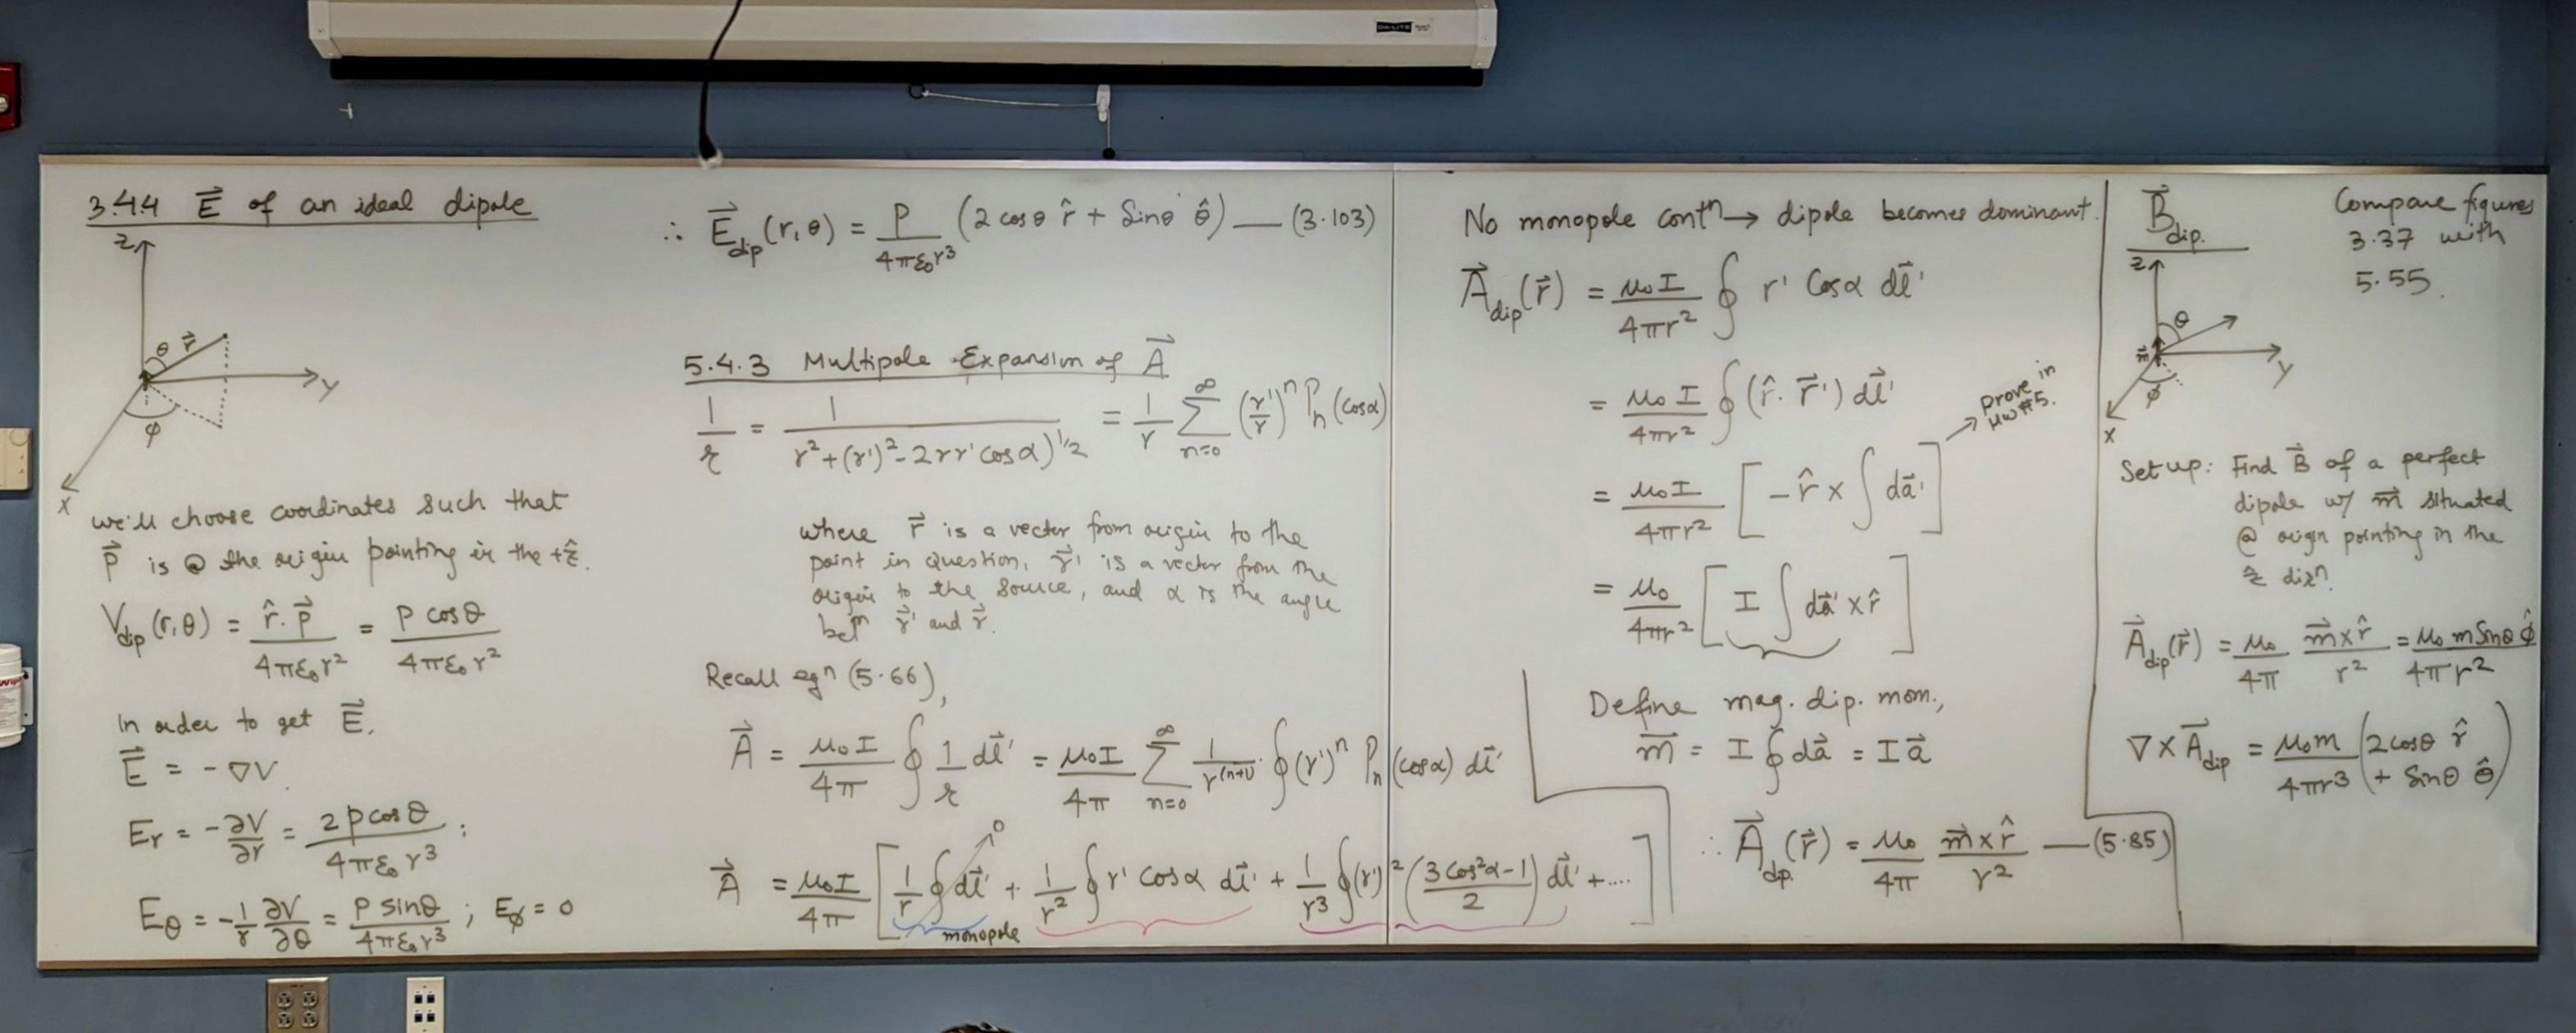 DA-LITE
3.4.4 E⃗ of an ideal dipole
z
θ r⃗
y
φ
x
we'll choose coordinates such that
p⃗ is @ the origin pointing in the +ẑ.
V_dip (r,θ) = r̂·p⃗ / 4πε₀r² = p cosθ / 4πε₀r²
In order to get E⃗,
E⃗ = -∇V
E_r = -∂V/∂r = 2p cosθ / 4πε₀r³ ;
E_θ = -1/r ∂V/∂θ = p sinθ / 4πε₀r³ ; E_φ = 0
∴ E⃗_dip (r,θ) = p / 4πε₀r³ (2 cosθ r̂ + Sinθ θ̂) — (3.103)
5.4.3 Multipole Expansion of A⃗
1/𝓇 = 1 / r² + (r')² - 2rr' cosα)^1/2 = 1/r ∑_{n=0}^∞ (r'/r)^n P_n (cosα)
where r⃗ is a vector from origin to the
point in question, r⃗' is a vector from the
origin to the source, and α is the angle
betⁿ r⃗' and r⃗.
Recall eqⁿ (5.66),
A⃗ = μ₀I/4π ∮ 1/𝓇 dl⃗' = μ₀I/4π ∑_{n=0}^∞ 1/r^(n+1) ∮(r')^n P_n (cosα) dl⃗'
A⃗ = μ₀I/4π [ 1/r ∮ dl⃗' + 1/r² ∮ r' cosα dl⃗' + 1/r³ ∮(r')² (3cos²α-1 / 2) dl⃗' + .... ]
0
monopole
No monopole contⁿ → dipole becomes dominant.
A⃗_dip (r⃗) = μ₀I/4πr² ∮ r' Cosα dl⃗'
= μ₀I/4πr² ∮ (r̂·r⃗') dl⃗'
= μ₀I/4πr² [ -r̂ × ∫ da⃗' ]
→ prove in
HW#5.
= μ₀/4πr² [ I ∫ da⃗' × r̂ ]
Define mag. dip. mom.,
m⃗ = I ∮ da⃗ = I a⃗
∴ A⃗_dip. (r⃗) = μ₀/4π m⃗×r̂/r² — (5.85)
B⃗_dip.
Compare figures
3.37 with
5.55.
z
θ
m⃗
y
φ
x
Set up: Find B⃗ of a perfect
dipole w/ m⃗ situated
@ origin pointing in the
ẑ dirⁿ.
A⃗_dip (r⃗) = μ₀/4π m⃗×r̂/r² = μ₀ m Sinθ φ̂ / 4πr²
∇ × A⃗_dip = μ₀m/4πr³ (2cosθ r̂
+ Sinθ θ̂)